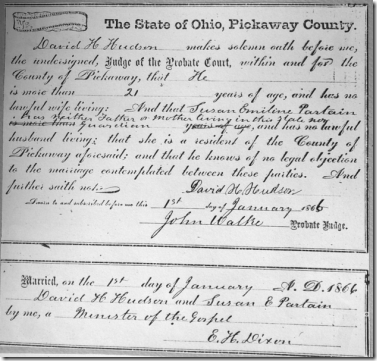 The State of Ohio, Pickaway County.
David H Hudson makes solemn oath before me,
the undersigned, Judge of the Probate Court, within and for the
County of Pickaway, that He
is more than 21 years of age, and has no
lawful wife living; And that Susan Emiline Partain
has neither Father or Mother living in this State nor
is more than Guardian years of age, and has no lawful
husband living; that she is a resident of the County of
Pickaway aforesaid; and that he knows of no legal objection
to the marriage contemplated between these parties. And
further saith not.
David H. Hudson
Sworn to and subscribed before me this 1st day of January 1866
John Walke Probate Judge.
Married, on the 1st day of January A. D. 1866
David H Hudson and Susan E Partain
by me, a Minister of the Gospel
E. H. Dixon